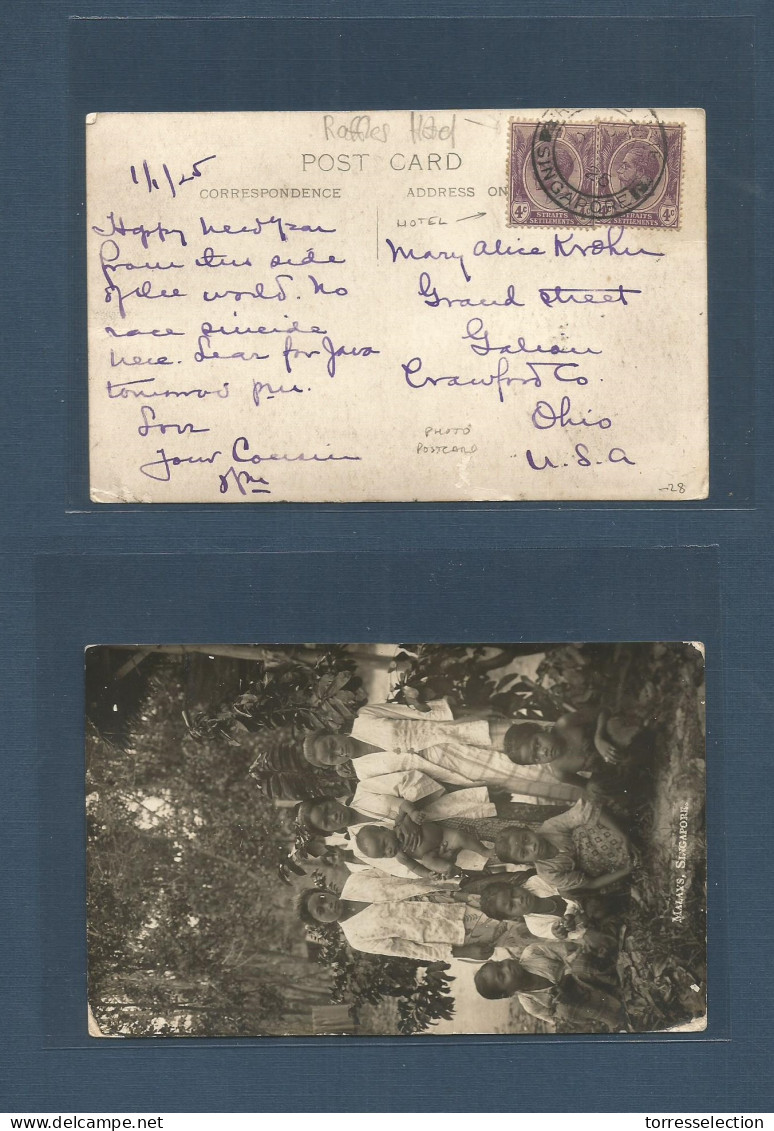 Raffles Hotel
POST CARD
1/1/25
CORRESPONDENCE
ADDRESS ON
HOTEL
SINGAPORE
4c STRAITS SETTLEMENTS
STRAITS SETTLEMENTS 4c
Happy New Year
from this side
of the world. No
race suicide
here. Lear for Java
tomorrow pm.
Love
Your Cousin
Mary Alice Krohn
Grand street
Galion
Crawford Co.
Ohio
U.S.A
PHOTO
POSTCARD
-28
MALAYS, SINGAPORE.
delcampe.net
torresselection